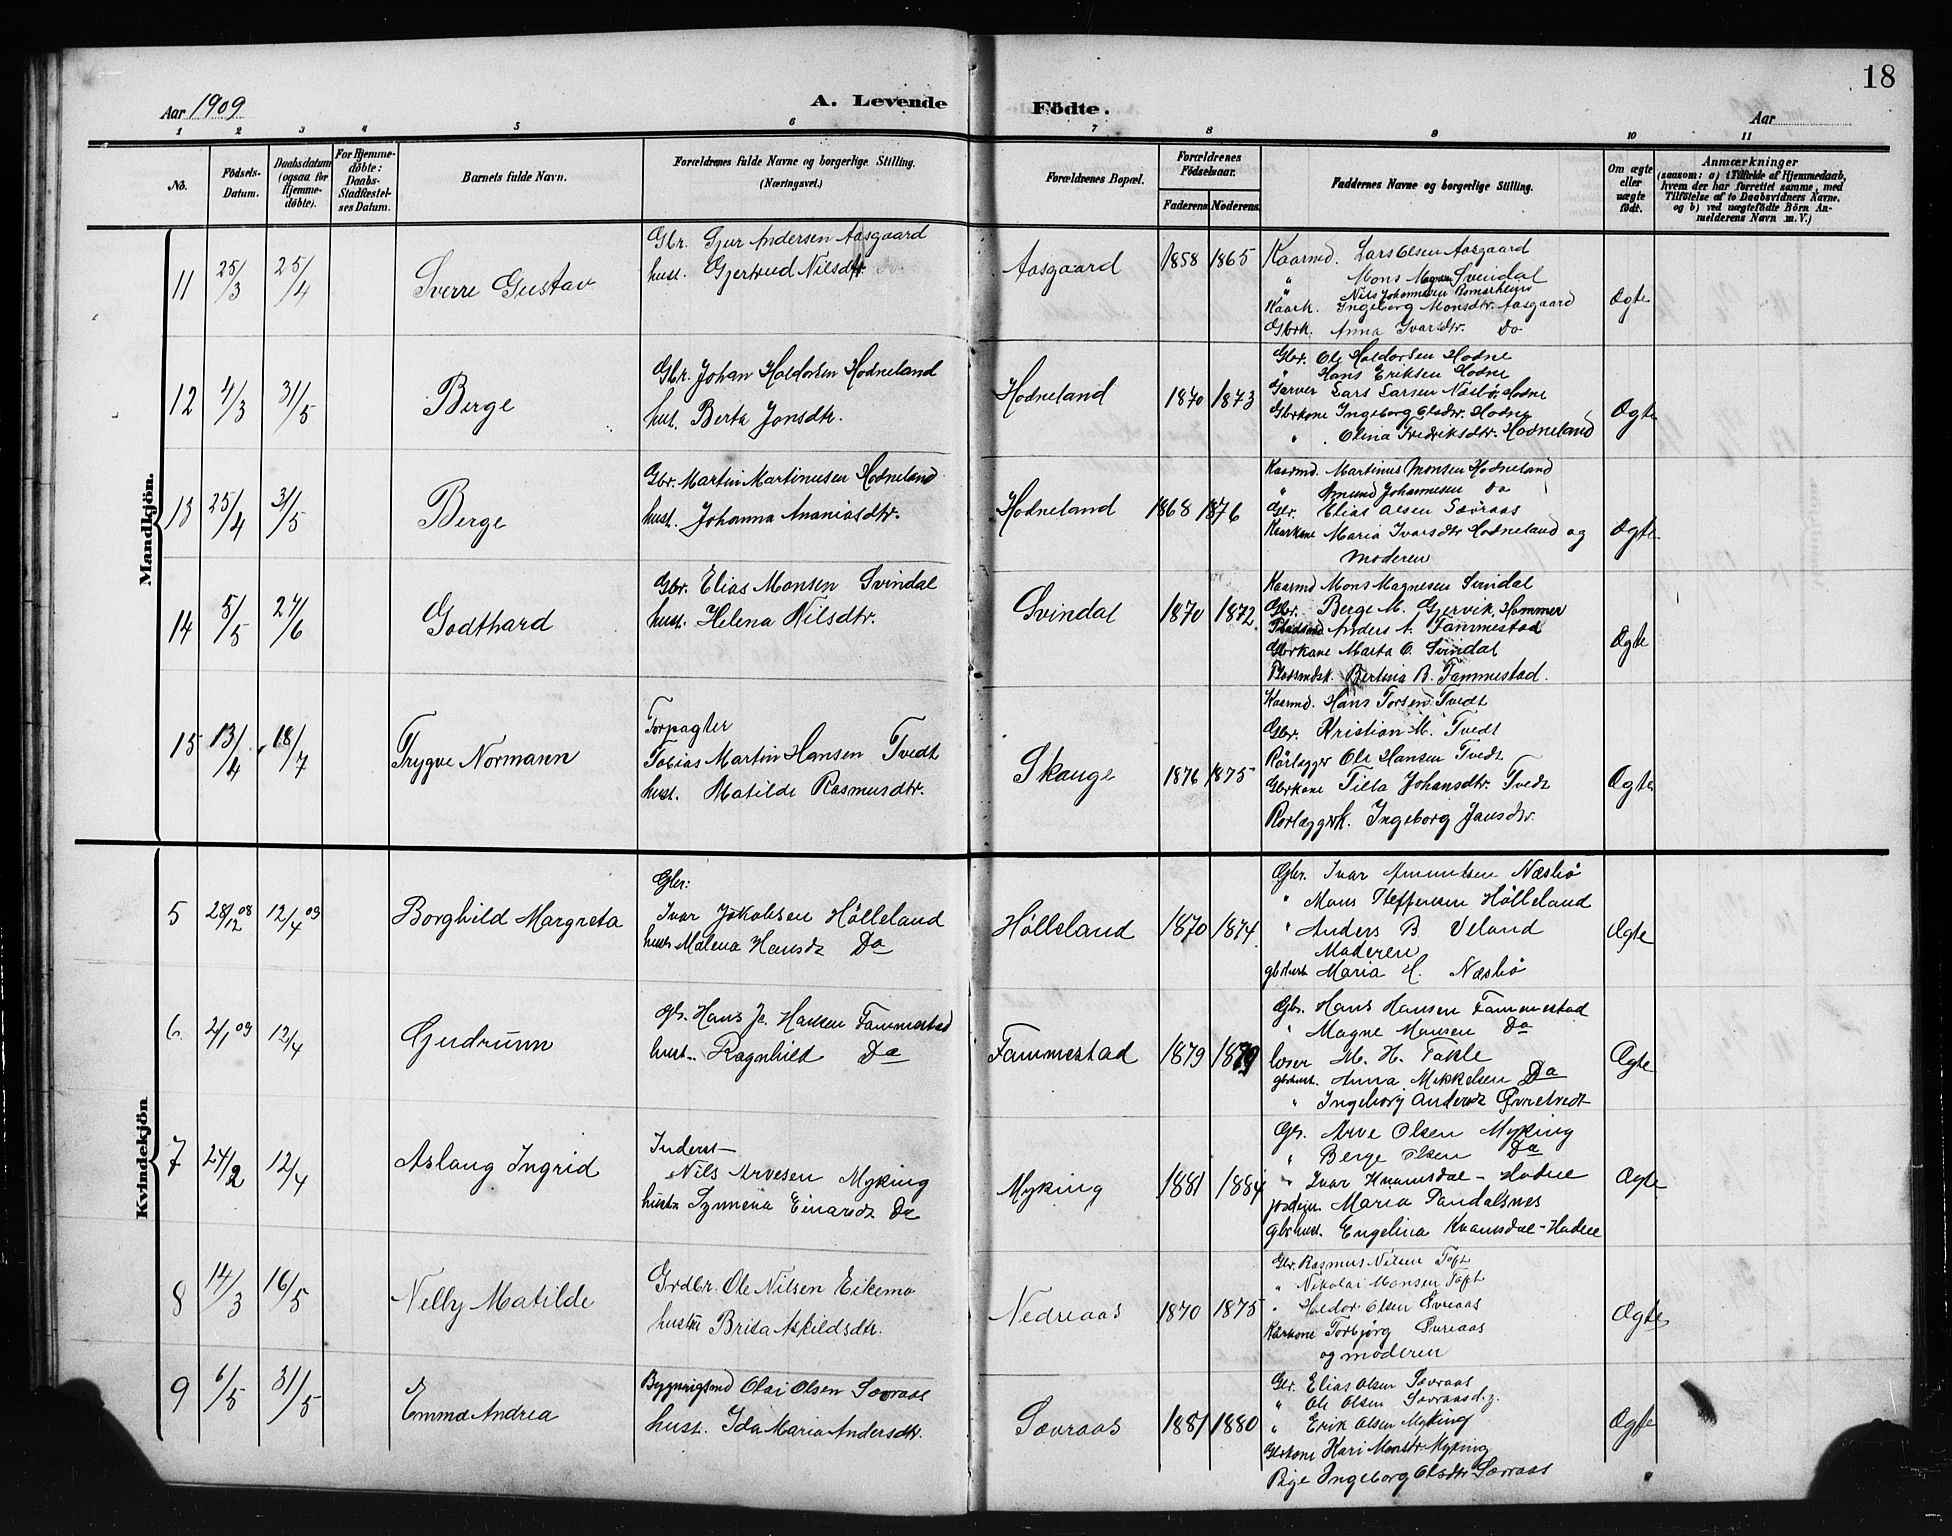 18
Aar 1909
A. Levende Födte.
Aar
1 2 3 4 5 6 7 8 9 10 11
No.
Födsels-
Datum.
Daabsdatum
(ogsaa for
Hjemme-
döbte).
For Hjemme-
döbte:
Daabs-
Stadfestel-
ses Datum.
Barnets fulde Navn.
Forældrenes fulde Navne og borgerlige Stilling.
(Næringsvei.)
Forældrenes Bopæl.
Forældrenes
Födselsaar.
Faderens Moderens
Faddernes Navne og borgerlige Stilling.
Om ægte
eller
uægte
födt.
Anmærkninger
(saasom: a) i Tilfælde af Hjemmedaab,
hvem der har forrettet samme, med
Tilföielse af to Daabsvidners Navne,
og b) ved uægtefödte Börn An-
melderens Navn m. V.)
Mandkjön.
11 25/3 25/4
Sverre Gustav
Gbr. Gjur Andersen Aasgaard
hust. Gjertrud Nilsdtr. Do
Aasgaard 1858 1865
Kaarmd. Lars Olsen Aasgaard
" Mons Magnesen Svindal
" Nils Johannesen Romarheim
Kaark. Ingeborg Monsdtr. Aasgaard
Gbrk. Anna Ivarsdtr. Do
Ægte
12 4/3 31/5
Berge
Gbr. Johan Haldorsen Hodneland
hust. Berta Jonsdtr.
Hodneland 1870 1873
Gbr. Ole Haldorsen Hodne
" Hans Eriksen Hodne
Garver Lars Larsen Næsbø, Hodne
Gbrkone Ingeborg Olsdtr. Hodne
" Olina Fredriksdtr. Hodneland
Ægte
13 25/4 31/5
Berge
Gbr. Martin Martinusen Hodneland
hust. Johanna Ananiasdtr.
Hodneland 1868 1876
Kaarmd. Martinus Monsen Hodneland
" Amund Johannesen Do
Gbr. Elias Olsen Sævraas
Kaarkone Maria Ivarsdtr Hodneland og
moderen
Ægte
14 5/5 27/6
Godthard
Gbr. Elias Monsen Svindal
hust. Helena Nilsdtr.
Svindal 1870 1872
Kaarmd Mons Magnesen Svindal
Gbr. Berge M. Gjervik, Hammer
Pladsmd Anders A. Fammestad
Gbrkone Marta O. Svindal
Pladsmdsk. Bertina B. Fammestad.
Ægte
15 13/4 18/7
Trygve Normann
Forpagter
Tobias Martin Hansen Tvedt
hust. Matilde Rasmusdtr.
Skauge 1876 1875
Kaarmd. Hans Torsen Tvedt
Gbr. Kristian M. Tvedt
Rörlegger Ole Hansen Tvedt
Gbrkone Tilla Johansdtr. Tvedt
Rorlæggerk. Ingeborg Jansdtr.
Ægte
Kvindekjön
5 28/12 08 12/4 09
Borghild Margreta
Gbr.
Ivar Jakobsen Hölleland
hustr Malena Hansdt Do
Hölleland 1870 1874
Gbr. Ivar Amundsen Næsbö
" Mons Steffensen Hölleland
" Anders B Veland
Moderen
gbrhust Maria H. Næsbö
Ægte
6 2/1 09 12/4
Gudrunn
Gbr. Hans Jo. Hansen Fammestad
hust. Ragnhild Do
Fammestad 1879 1879
Gbr. Hans Hansen Fammestad
" Magne Hansen Do
lærer M. H. Takle
gbrhust. Anna Mikkelsen Do
" Ingeborg Andersdt Øvretvedt
Ægte
7 24/2 12/4
Aslaug Ingrid
Inderst
Nils Arvesen Myking
hustr Synneva Einarsdt Do
Myking 1881 1884
Gbr. Arve Olsen Myking
" Berge Olsen Do
" Ivar Kvamsdal - Hodne
Maria Tandalsnes
gbrhust. Engelina Kvamsdal - Hodne
Ægte
8 14/3 16/5
Nelly Matilde
Grdbr. Ole Nilsen Eikemo
hustru Brita Askildsdtr.
Nedreaas 1870 1875
Gbr. Rasmus Nilsen Toft
" Nikolai Monsen Toft
" Haldor Olsen Øvreaas
Kårkone Torbjørg Øvreaas
og moderen
Ægte
9 6/5 31/5
Emma Andrea
Bygningsmd Olai Olsen Sævraas
hust. Ida Maria Andersdtr.
Sævraas 1881 1880
Gbr. Elias Olsen Sævraas
" Ole Olsen Sævraas d.y.
" Erik Olsen Myking
Gbrkone Kari Monsdtr Myking
Pige Ingeborg Olsdtr Sævraas
Ægte